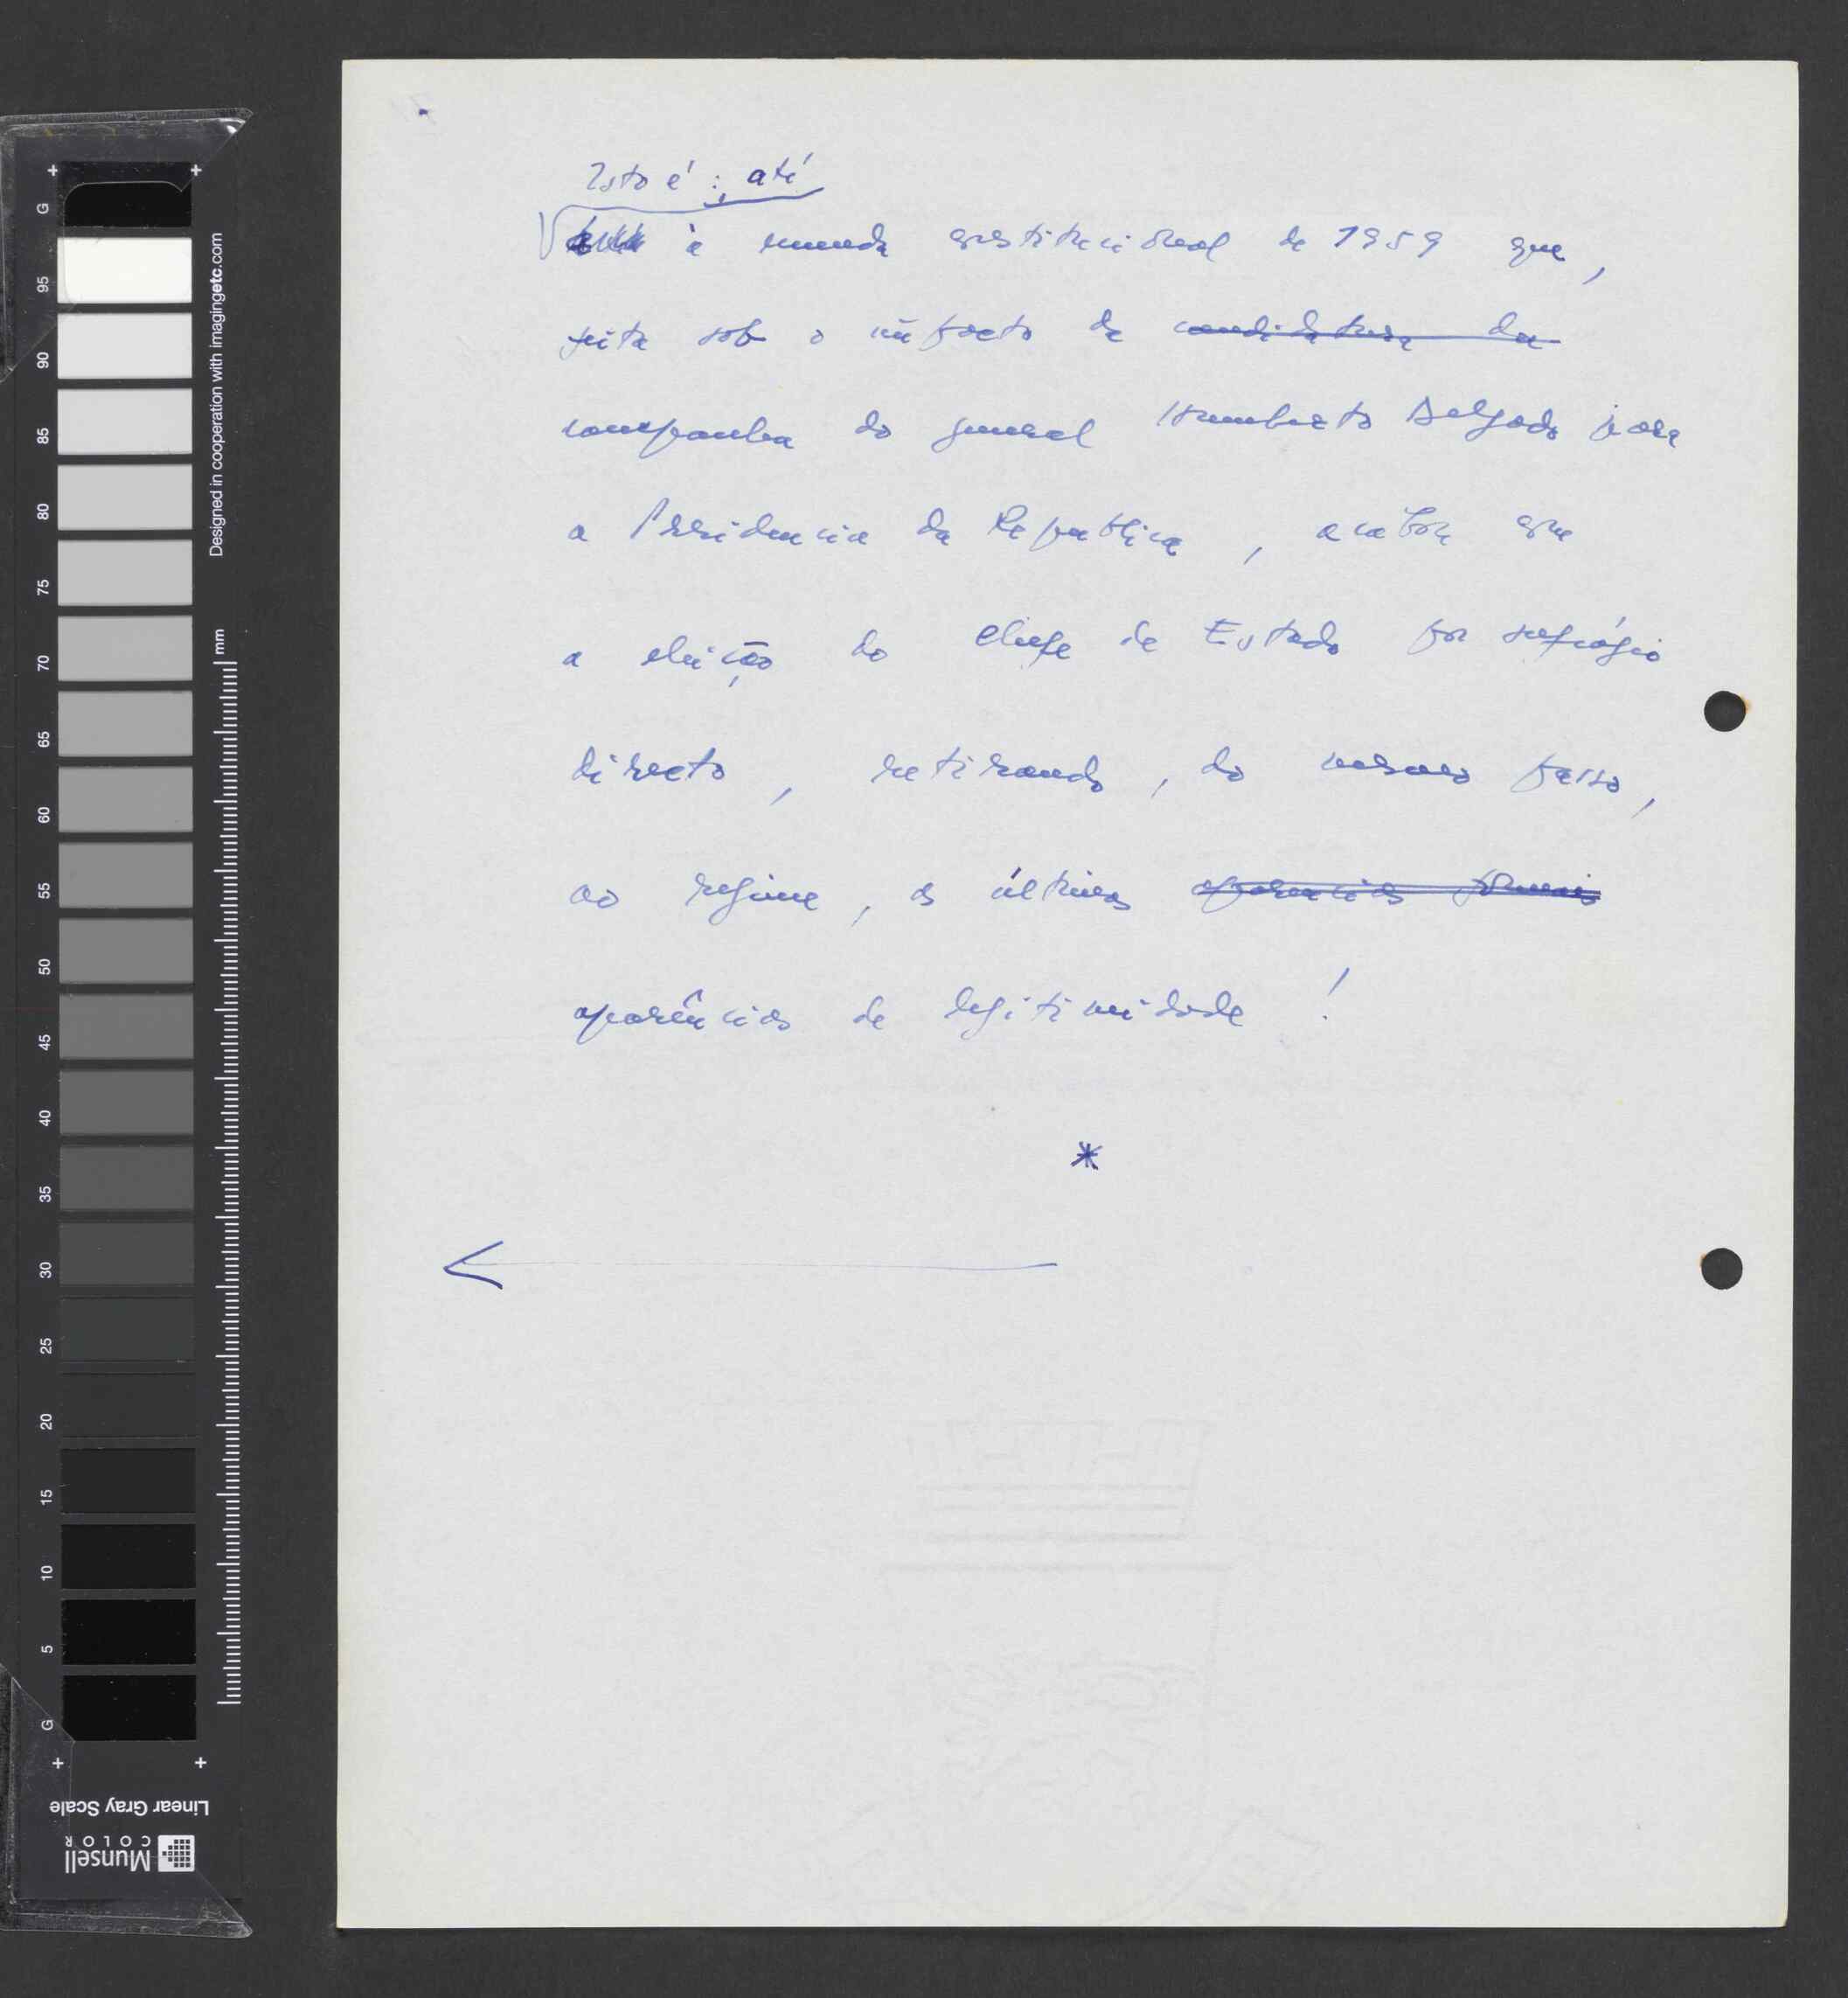 Isto é: até
à emenda constitucional de 1959 que,
feita sob o impacto da candidatura da
campanha do general Humberto Delgado para
a Presidencia da Republica, acabou
a eleição do chefe de Estado por sufrágio
directo, retirando, do mesmo passo,
ao regime, as últimas aparencias formais
aparências de legitimidade!
*
G
95
90
85
80
75
70
65
60
55
50
45
40
35
30
25
20
15
10
5
G
Designed in cooperation with imagingetc.com
mm
Linear Gray Scale
Munsell
COLOR